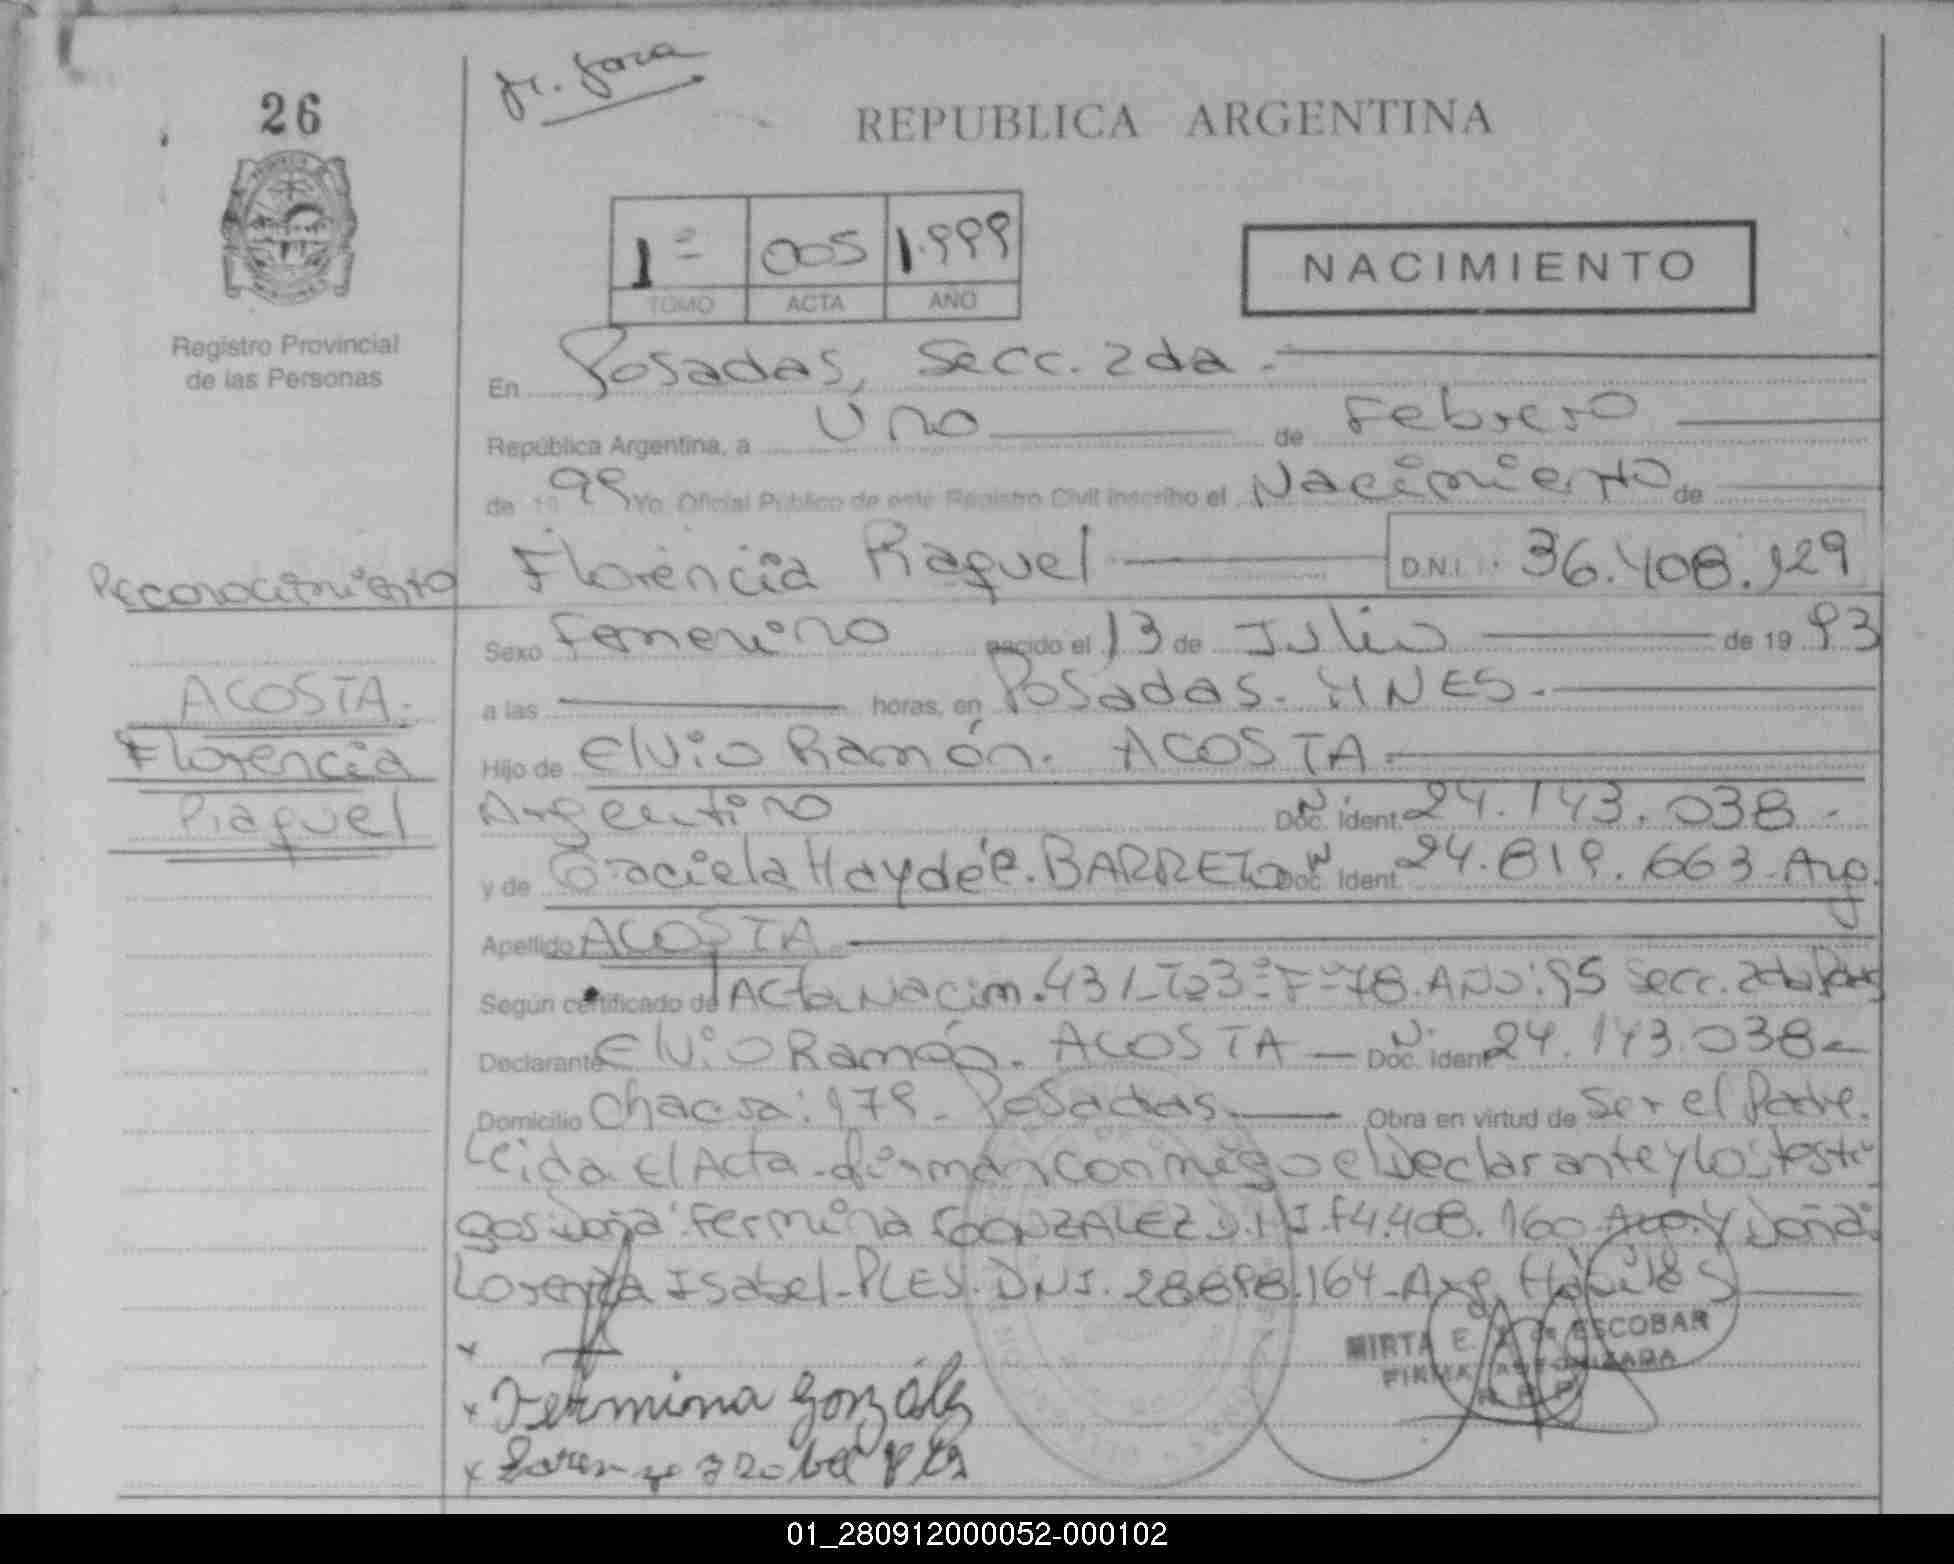 26
REPUBLICA ARGENTINA
1º 005 1.999
TOMO ACTA AÑO
NACIMIENTO
Registro Provincial
de las Personas
En Posadas, Secc. 2da.
República Argentina, a Uno de Febrero
de 1999 Yo, Oficial Público de este Registro Civil inscribo el Nacimiento de
Reconocimiento
Florencia Raquel D.N.I. 36.408.129
Sexo Femenino nacido el 13 de Julio de 1993
a las horas, en Posadas. MNES.
ACOSTA.
Florencia
Raquel
Hijo de Elvio Ramón. ACOSTA.
Argentino Doc. Ident. 24.143.038.-
y de Graciela Haydée. BARRETO Doc. Ident. 24.819.663-Arg.
Apellido ACOSTA
Según certificado de Acta Nacim. 431-Tº3º-Fº78. AÑO:95 Secc. 2da
Declarante Elvio Ramón. ACOSTA Doc. Ident. 24.143.038-
Domicilio Chacra: 179- Posadas. Obra en virtud de ser el Padre.
Leida el Acta-firman conmigo el Declarante y los testi
gos Doña: Fermina GONZALEZ D.N.I. F4.408.160-Arg. Y Doña:
Lorenza Isabel-PLES. DNI. 28898.164-Arg. Hábiles
MIRTA E. de ESCOBAR
FIRMA AUTORIZADA
x
x Fermina González
x
01_280912000052-000102